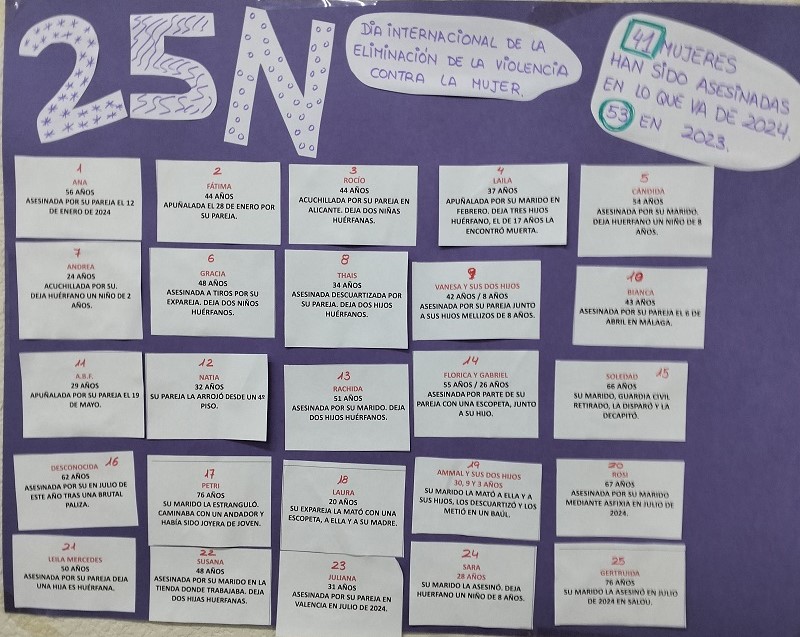 25N
DIA INTERNACIONAL DE LA
ELIMINACIÓN DE LA VIOLENCIA
CONTRA LA MUJER.
41 MUJERES
HAN SIDO ASESINADAS
EN LO QUE VA DE 2024.
53 EN 2023.
1
ANA
56 AÑOS
ASESINADA POR SU PAREJA EL 12
DE ENERO DE 2024
2
FÁTIMA
44 AÑOS
APUÑALADA EL 28 DE ENERO POR
SU PAREJA.
3
ROCÍO
44 AÑOS
ACUCHILLADA POR SU PAREJA EN
ALICANTE. DEJA DOS NIÑAS
HUÉRFANAS.
4
LAILA
37 AÑOS
APUÑALADA POR SU MARIDO EN
FEBRERO. DEJA TRES HIJOS
HUÉRFANO, EL DE 17 AÑOS LA
ENCONTRÓ MUERTA.
5
CÁNDIDA
54 AÑOS
ASESINADA POR SU MARIDO.
DEJA HUERFANO UN NIÑO DE 8
AÑOS.
7
ANDREA
24 AÑOS
ACUCHILLADA POR SU.
DEJA HUÉRFANO UN NIÑO DE 2
AÑOS.
6
GRACIA
48 AÑOS
ASESINADA A TIROS POR SU
EXPAREJA. DEJA DOS NIÑOS
HUÉRFANOS.
8
THAIS
34 AÑOS
ASESINADA DESCUARTIZADA POR
SU PAREJA. DEJA DOS HIJOS
HUÉRFANOS.
9
VANESA Y SUS DOS HIJOS
42 AÑOS / 8 AÑOS
ASESINADA POR SU PAREJA JUNTO
A SUS HIJOS MELLIZOS DE 8 AÑOS.
10
BIANCA
43 AÑOS
ASESINADA POR SU PAREJA EL 6 DE
ABRIL EN MÁLAGA.
11
A.B.F.
29 AÑOS
APUÑALADA POR SU PAREJA EL 19
DE MAYO.
12
NATIA
32 AÑOS
SU PAREJA LA ARROJÓ DESDE UN 4º
PISO.
13
RACHIDA
51 AÑOS
ASESINADA POR SU MARIDO. DEJA
DOS HIJOS HUÉRFANOS.
14
FLORICA Y GABRIEL
55 AÑOS / 26 AÑOS
ASESINADA POR PARTE DE SU
PAREJA CON UNA ESCOPETA, JUNTO
A SU HIJO.
SOLEDAD 15
66 AÑOS
SU MARIDO, GUARDIA CIVIL
RETIRADO, LA DISPARÓ Y LA
DECAPITÓ.
DESCONOCIDA 16
62 AÑOS
ASESINADA POR SU EN JULIO DE
ESTE AÑO TRAS UNA BRUTAL
PALIZA.
17
PETRI
76 AÑOS
SU MARIDO LA ESTRANGULÓ.
CAMINABA CON UN ANDADOR Y
HABÍA SIDO JOYERA DE JOVEN.
18
LAURA
20 AÑOS
SU EXPAREJA LA MATÓ CON UNA
ESCOPETA, A ELLA Y A SU MADRE.
19
AMMAL Y SUS DOS HIJOS
30, 9 Y 3 AÑOS
SU MARIDO LA MATÓ A ELLA Y A
SUS HIJOS, LOS DESCUARTIZÓ Y LOS
METIÓ EN UN BAÚL.
20
ROSI
67 AÑOS
ASESINADA POR SU MARIDO
MEDIANTE ASFIXIA EN JULIO DE
2024.
21
LEILA MERCEDES
50 AÑOS
ASESINADA POR SU PAREJA DEJA
UNA HIJA ES HUÉRFANA.
22
SUSANA
48 AÑOS
ASESINADA POR SU MARIDO EN LA
TIENDA DONDE TRABAJABA. DEJA
DOS HIJAS HUERFANAS.
23
JULIANA
31 AÑOS
ASESINADA POR SU PAREJA EN
VALENCIA EN JULIO DE 2024.
24
SARA
28 AÑOS
SU MARIDO LA ASESINÓ. DEJA
HUERFANO UN NIÑO DE 8 AÑOS.
25
GERTRUIDA
76 AÑOS
SU MARIDO LA ASESINÓ EN JULIO
DE 2024 EN SALOU.